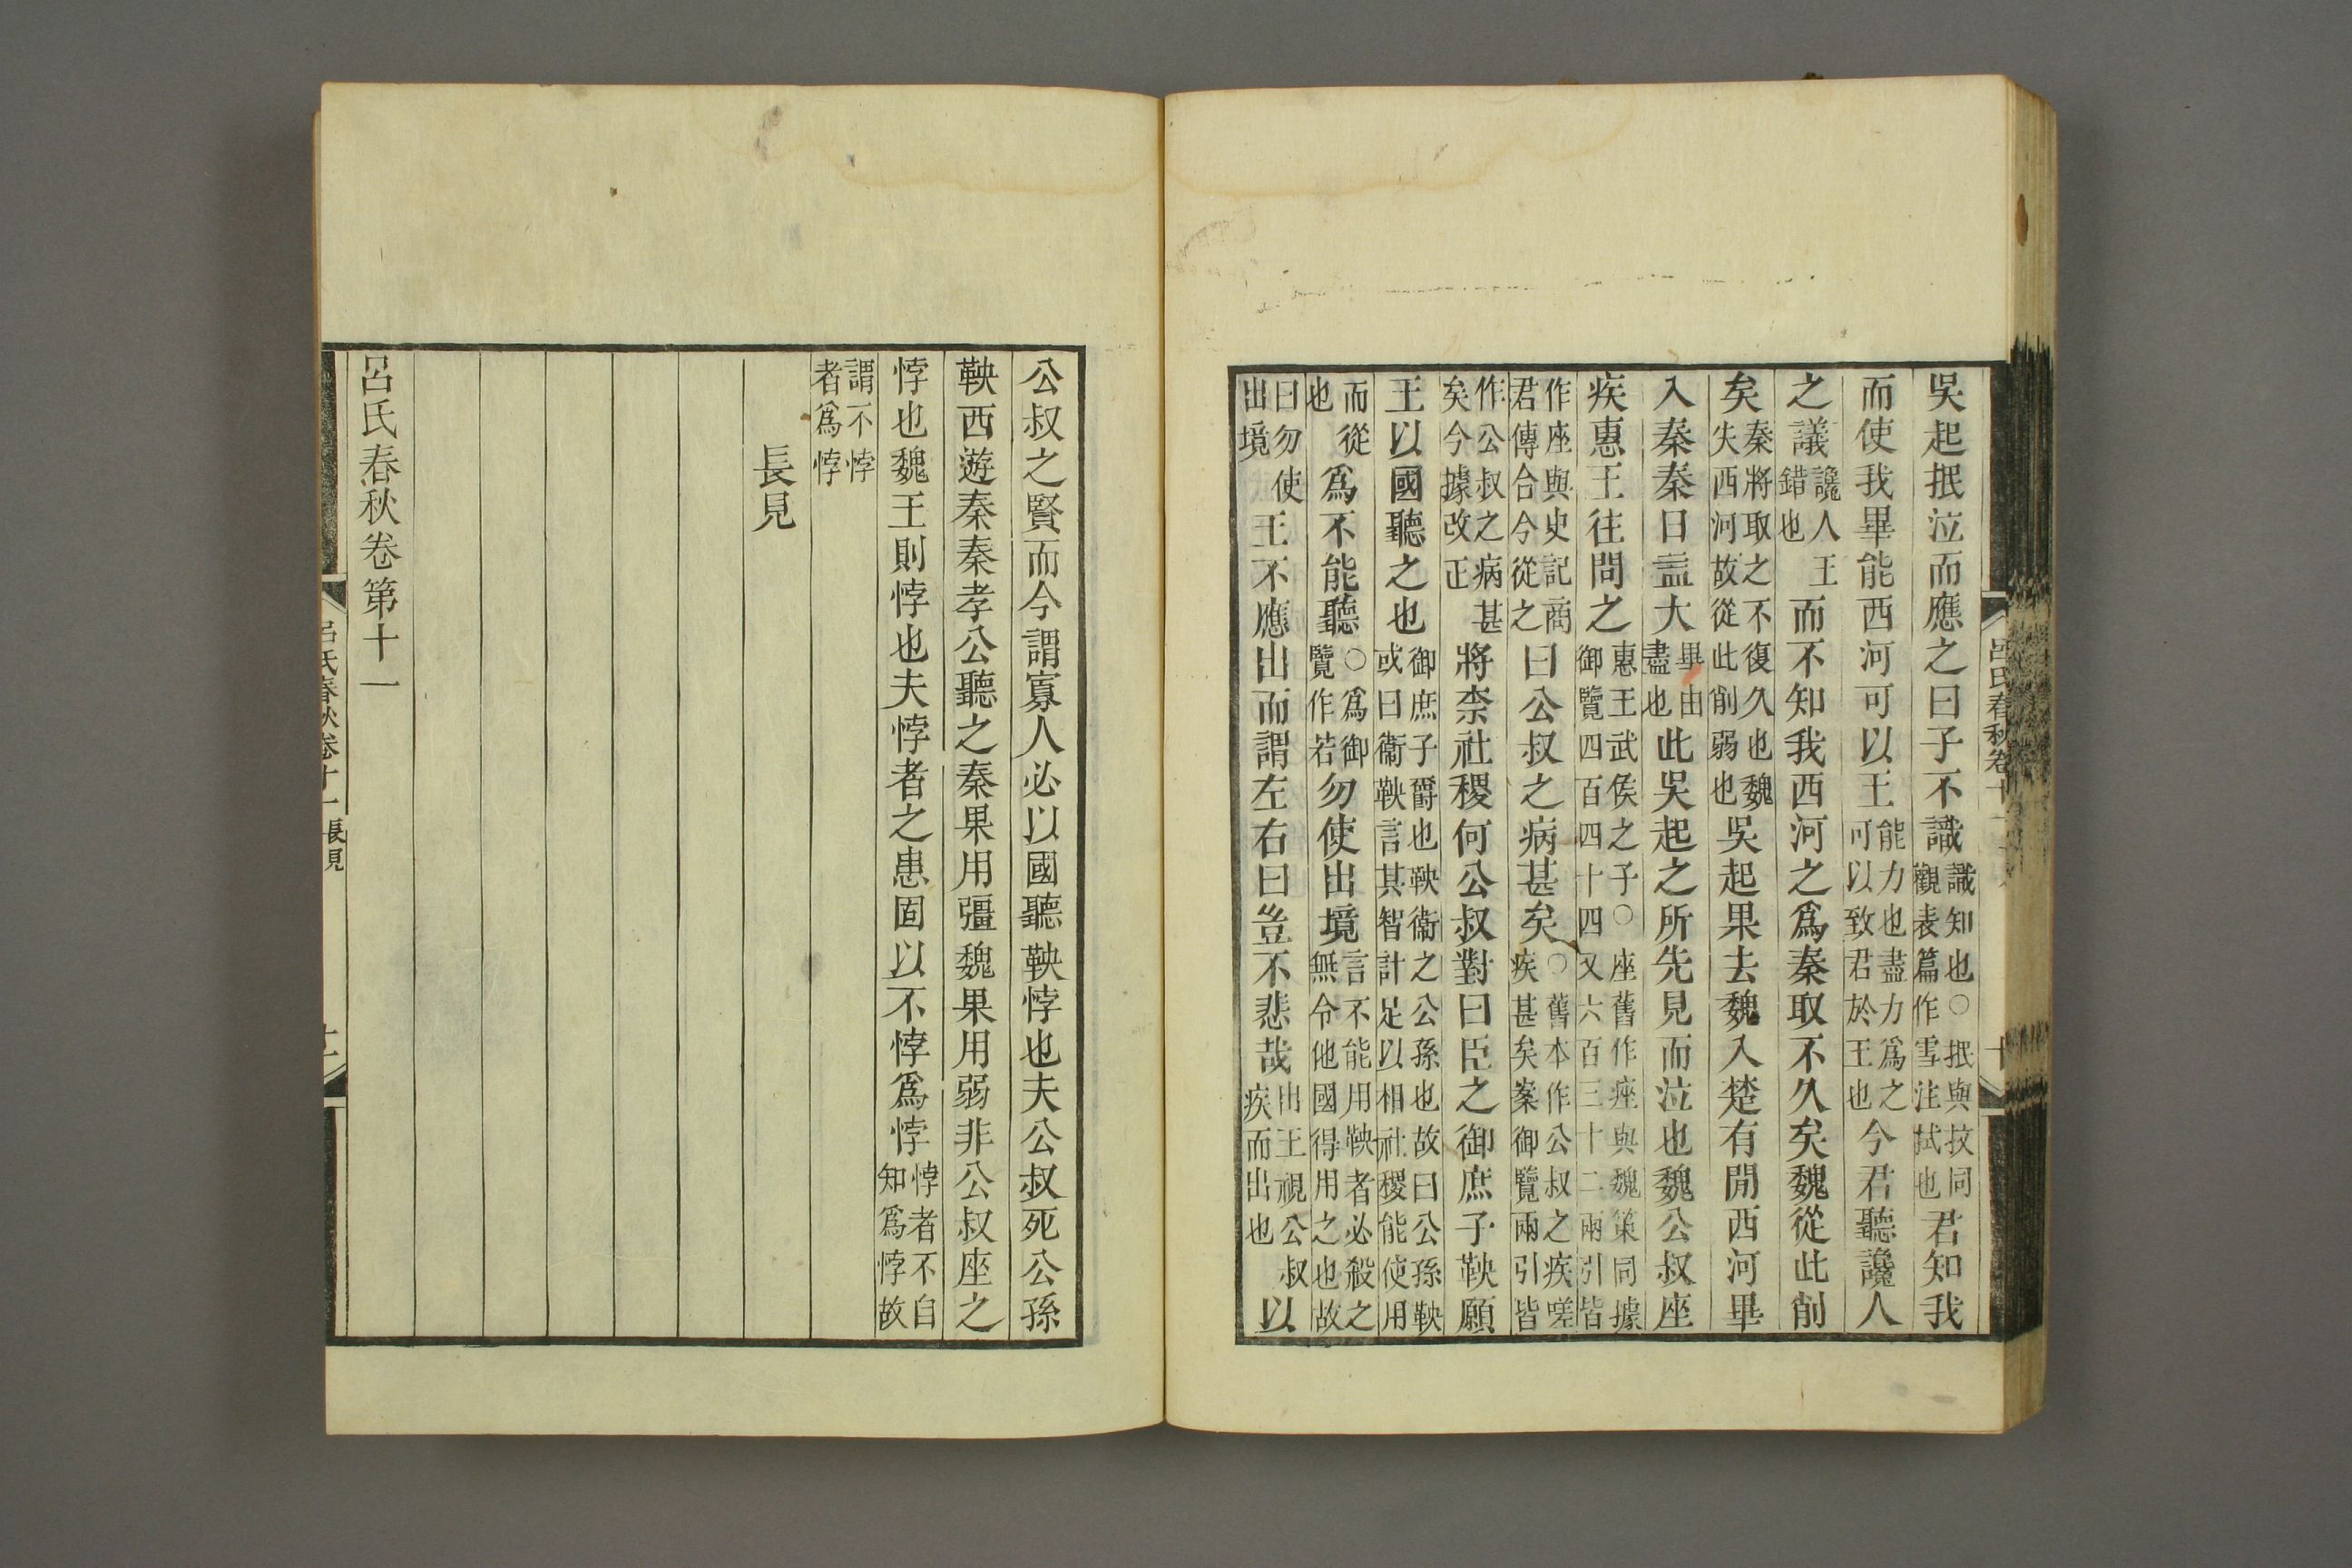 吳起抿泣而應之曰子不識識知也○抿與抆同觀表篇作雪注拭也君知我
而使我畢能西河可以王能力也盡力爲之可以致君於王也今君聽讒人
之議讒人王錯也而不知我西河之爲秦取不久矣魏從此削
矣秦將取之不復久也魏失西河故從此削弱也吳起果去魏入楚有閒西河畢
入秦秦日益大畢由盡也此吳起之所先見而泣也魏公叔座
疾惠王往問之惠王武侯之子○座舊作痤與魏策同據御覽四百四十四又六百三十二兩引皆
作座與史記商君傳合今從之曰公叔之病甚矣○舊本作公叔之疾嗟疾甚矣案御覽兩引皆
作公叔之病甚矣今據改正將柰社稷何公叔對曰臣之御庶子鞅願
王以國聽之也御庶子爵也鞅衞之公孫也故曰公孫鞅或曰衞鞅言其智計足以相社稷能使用
而從也爲不能聽○爲御覽作若勿使出境言不能用鞅者必殺之無令他國得用之也故
曰勿使出境王不應出而謂左右曰豈不悲哉出王視公叔疾而出也以
公叔之賢而今謂寡人必以國聽鞅悖也夫公叔死公孫
鞅西遊秦秦孝公聽之秦果用彊魏果用弱非公叔座之
悖也魏王則悖也夫悖者之患固以不悖爲悖悖者不自知爲悖故
謂不悖者爲悖
長見
呂氏春秋卷第十一
呂氏春秋卷十一 長見